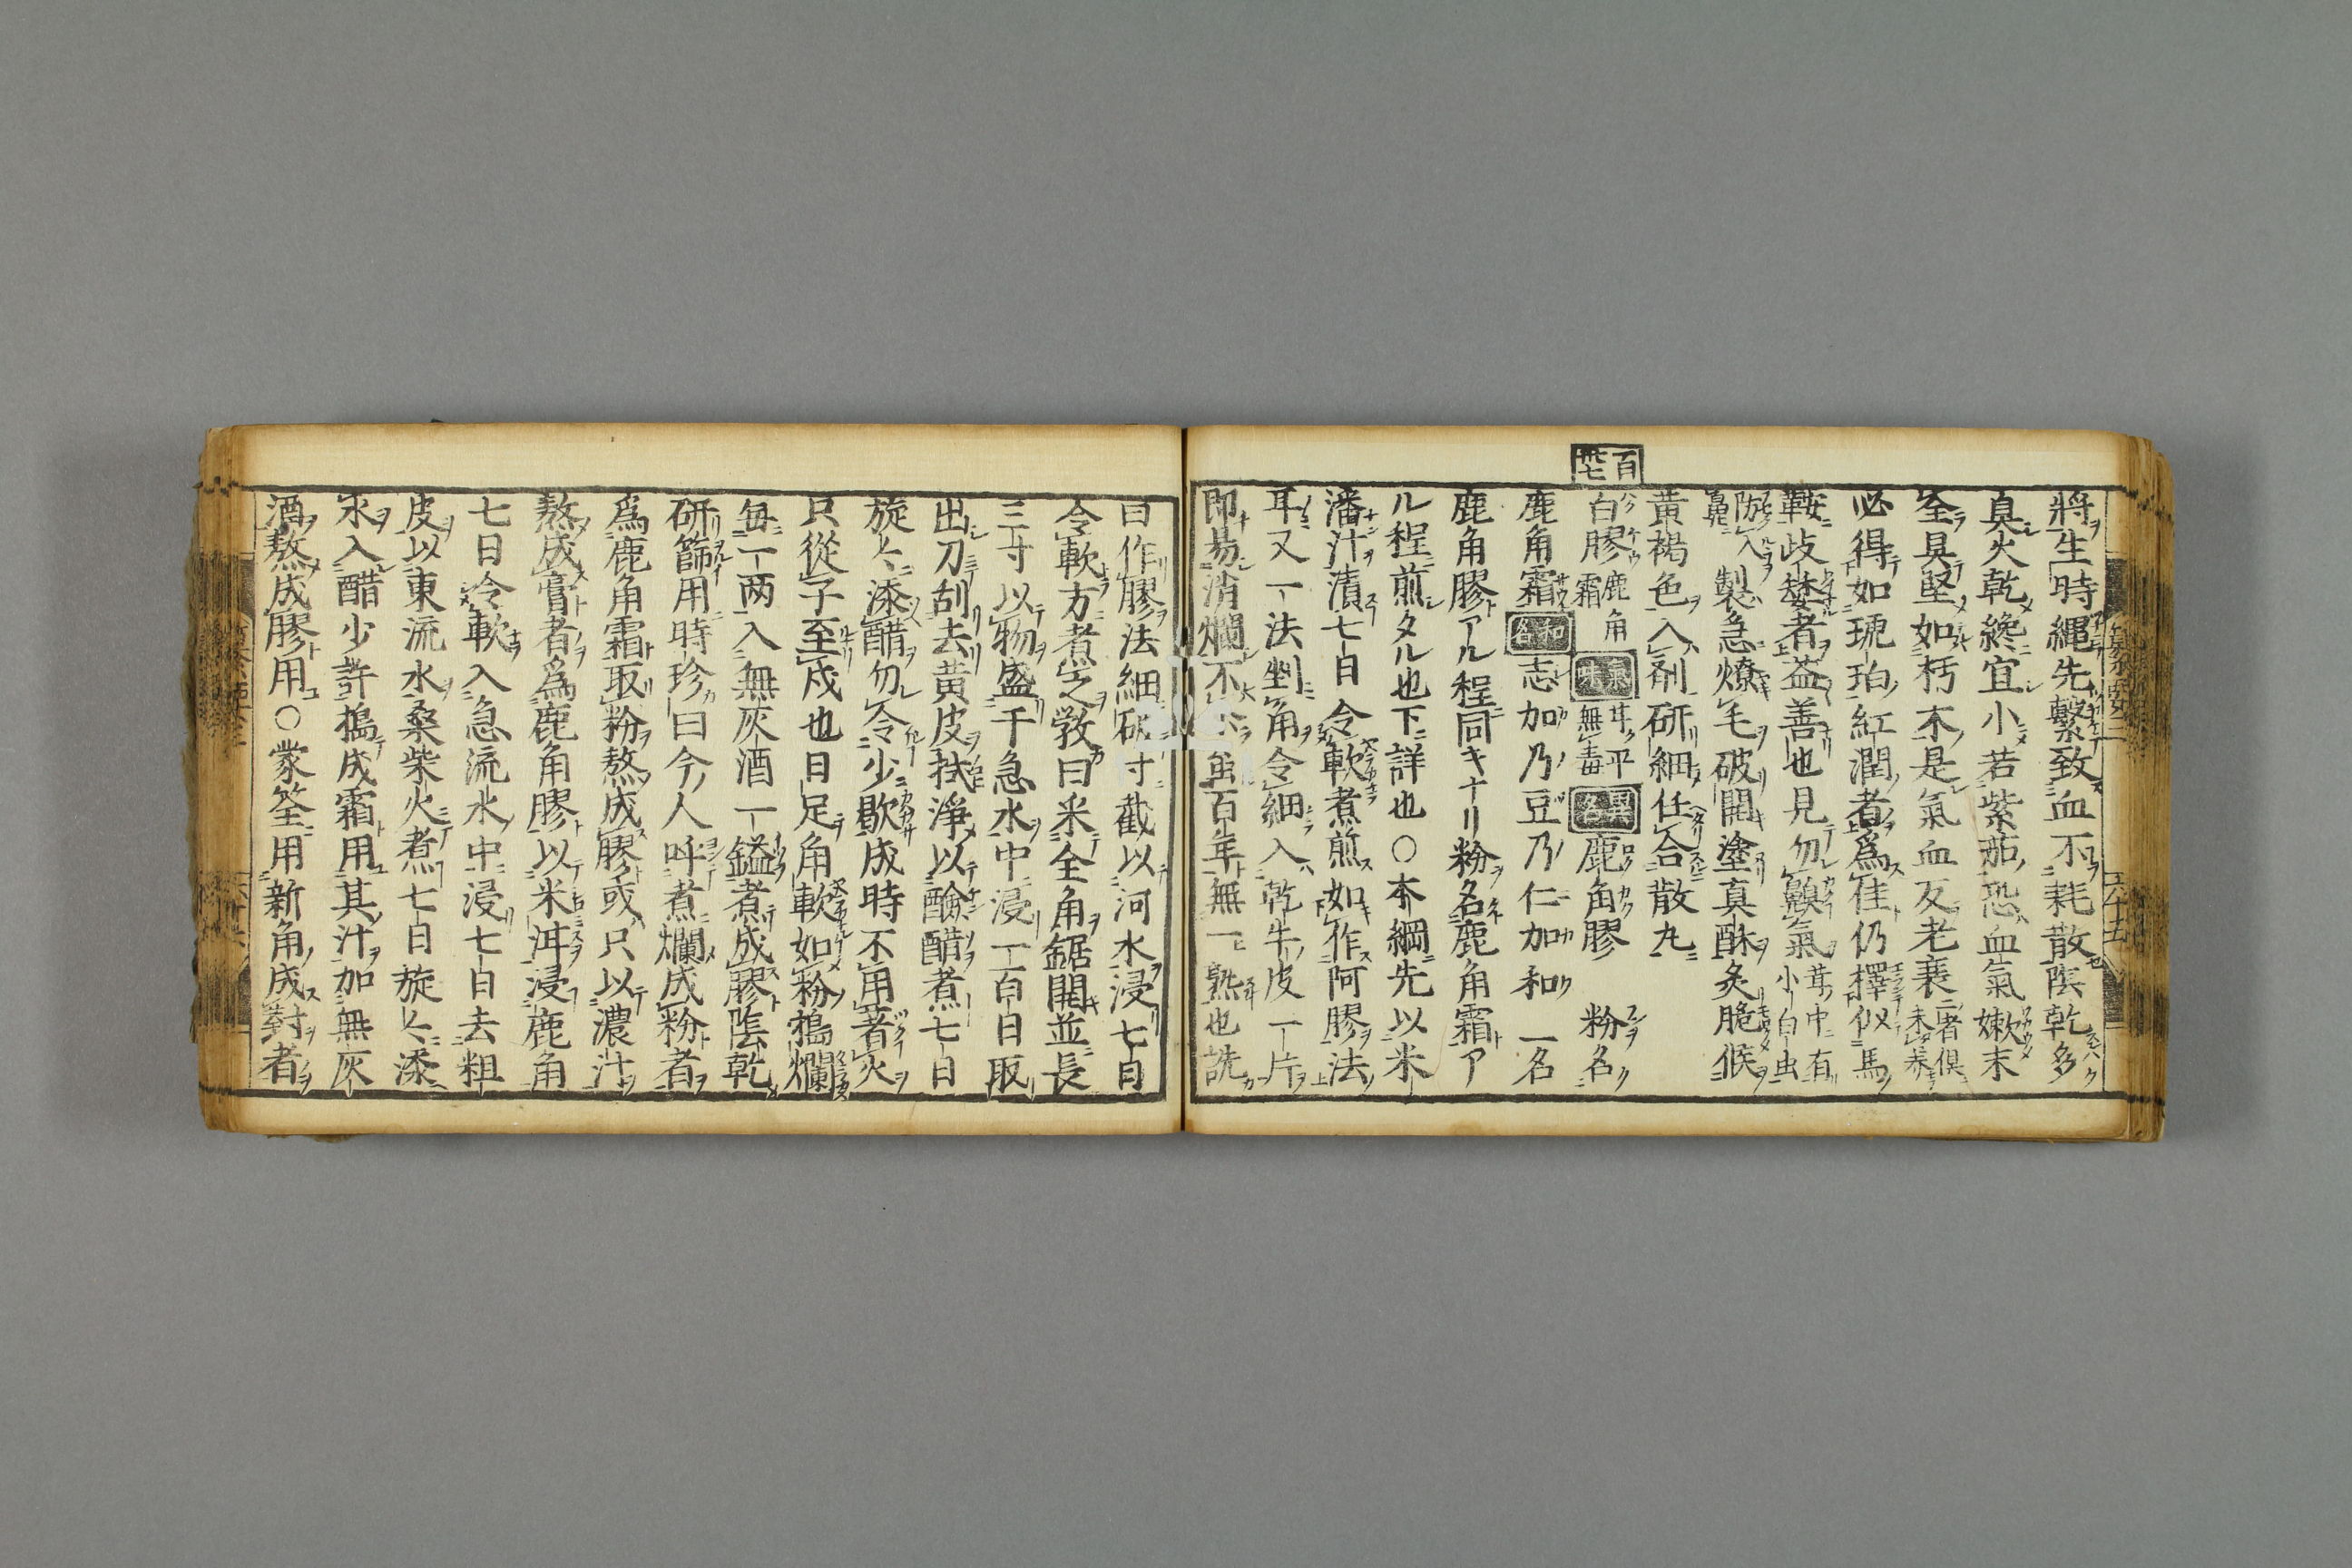 將生時縄先繫致血不耗散陰乾多
臭火乾纔宜小若紫茄恐血氣嫰末
全具堅如朽木是氣血反老衰二者俱未養
必得如琥珀紅潤者爲佳仍擇似馬
鞍歧矮者益善也見勿齅氣茸中有小白虫
入鼻製急燎毛破開塗真酥炙脆候
黃褐色入剤研細任合散丸
百
白膠鹿角霜氣味甘平無毒異名鹿角膠 粉名
鹿角霜和名志加乃豆乃仁加和 一名
鹿角膠アル程同キナリ粉名鹿角霜ア
ル程煎タル也下詳也○本綱先以米
潘汁漬七日令軟煮煎如作阿膠法
耳又一法剉角令細入乾牛皮一片
即易消爛不 百年無一熟也詵
曰作膠法細破寸截以河水浸七日
令軟方煮之斅曰米全角鋸開並長
三寸以物盛于急水中浸一百日取
出刀刮去黃皮拭淨以醶醋煮七日
旋旋添醋勿令少歇成時不用著火
只從子至戌也日足角軟如粉搗爛
毎一两入無灰酒一鎰煮成膠陰乾
研篩用時珍曰今人呼煮爛成粉者
爲鹿角霜取粉熬成膠或只以濃汁
熬成膏者爲鹿角膠以米泔浸鹿角
七日令軟入急流水中浸七日去粗
皮以東流水桑柴火煮七日旋旋添
水入醋少許搗成霜用其汁加無灰
酒熬成膠用○蒙筌用新角成對者